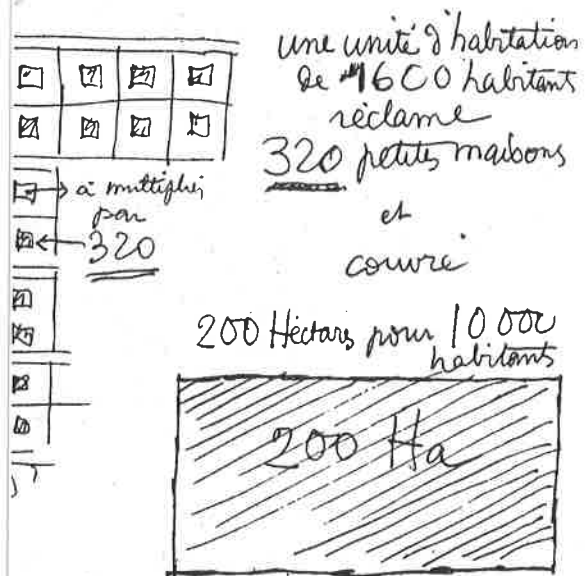 une unité d'habitation
de 1600 habitants
réclame
320 petites maisons
à multiplier
par
320
et
couvre
200 Hectares pour 10 000
habitants
200 Ha